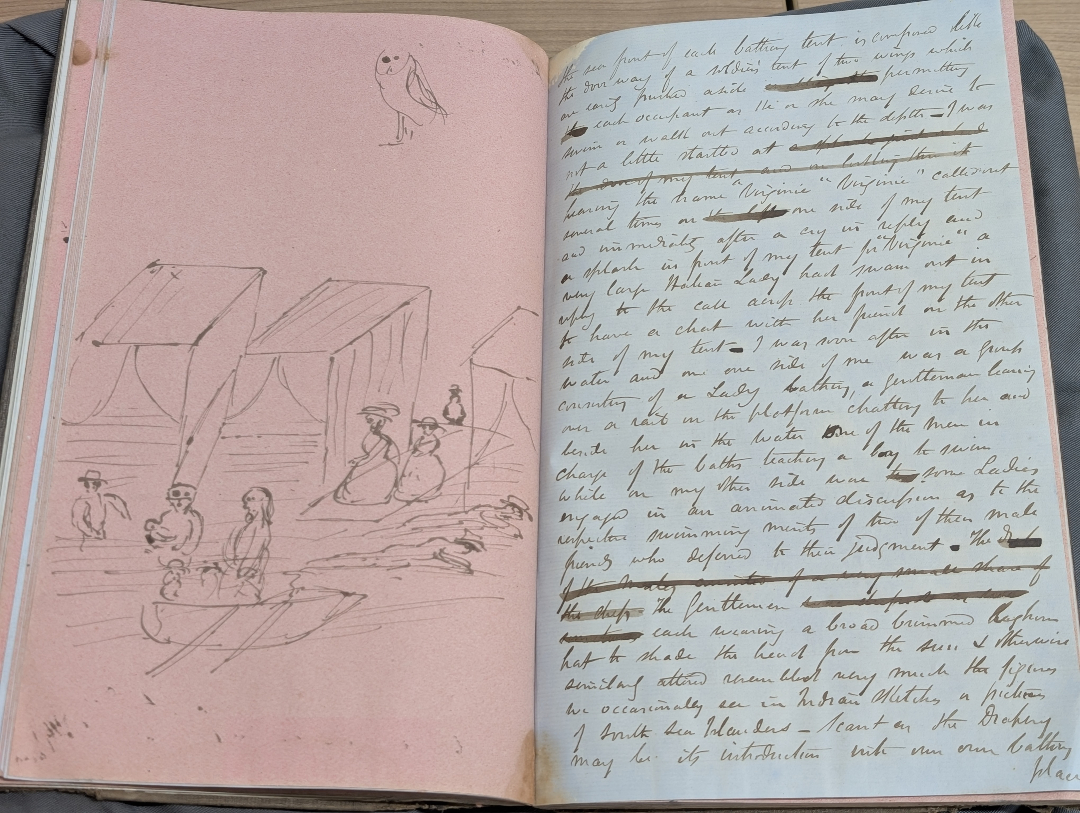 the sea front of each bathing tent is composed like
the doorway of a soldiers tent of two wings which
are easily pushed aside permitting
each occupant as He or she may desire to
swim or walk out according to the depth - I was
not a little startled at
the door of my tent and on
hearing the name "Virginie" "Virginie" called out
several times on one side of my tent
and immediately after a cry in reply and
a splash in front of my tent for "Virginie" a
very large Italian Lady had swam out in
reply to the call across the front of my tent
to have a chat with her friend on the other
side of my tent - I was soon after in the
water and one one side of me was a group
consisting of a Lady bathing, a gentleman leaning
over a rail on the platform chatting to her and
beside her in the water One of the men in
charge of the baths teaching a boy to swim
while on my other side were some Ladies
engaged in an animated discussion as to the
respective swimming merits of two of their male
friends who deferred to their judgment. The
of a very small share of
the The Gentlemen
each wearing a broad brimmed Leghorn
hat to shade the head from the sun & otherwise
similarly attired resembled very much the figures
we occasionally see in Indian sketches or pictures
of South sea Islanders - Scant as the Drapery
may be its introduction into our own bathing
place